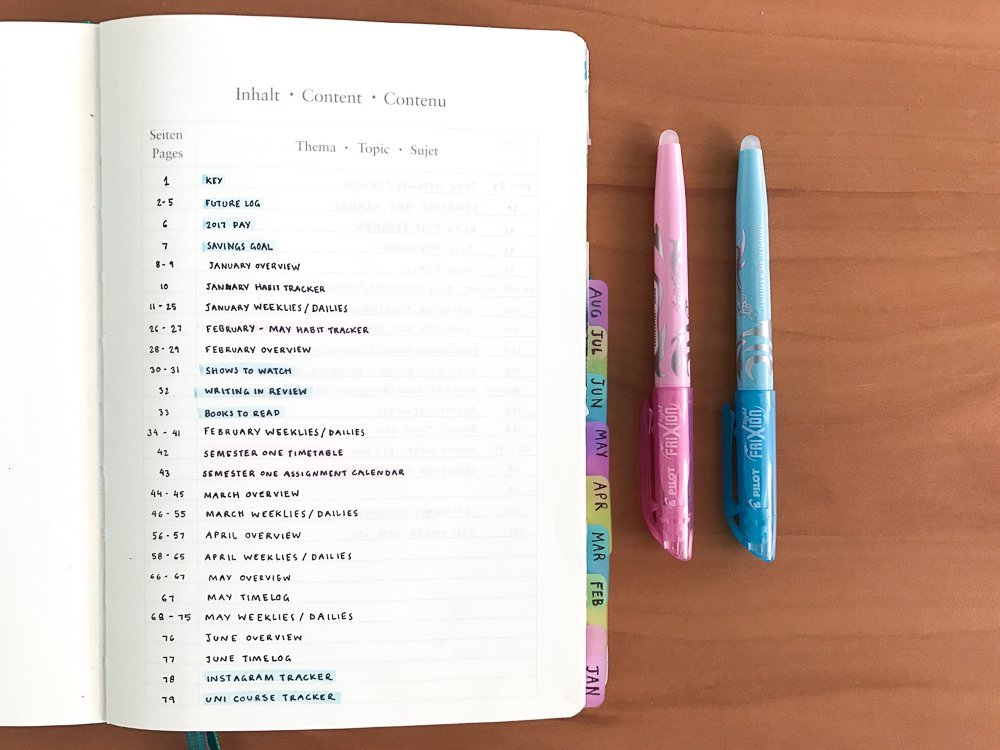 Inhalt • Content • Contenu
Seiten
Pages
Thema • Topic • Sujet
1 KEY
2-5 FUTURE LOG
6 2017 DAY
7 SAVINGS GOAL
8-9 JANUARY OVERVIEW
10 JANUARY HABIT TRACKER
11-25 JANUARY WEEKLIES/DAILIES
26-27 FEBRUARY - MAY HABIT TRACKER
28-29 FEBRUARY OVERVIEW
30-31 SHOWS TO WATCH
32 WRITING IN REVIEW
33 BOOKS TO READ
34-41 FEBRUARY WEEKLIES/DAILIES
42 SEMESTER ONE TIMETABLE
43 SEMESTER ONE ASSIGNMENT CALENDAR
44-45 MARCH OVERVIEW
46-55 MARCH WEEKLIES/DAILIES
56-57 APRIL OVERVIEW
58-65 APRIL WEEKLIES/DAILIES
66-67 MAY OVERVIEW
67 MAY TIMELOG
68-75 MAY WEEKLIES/DAILIES
76 JUNE OVERVIEW
77 JUNE TIMELOG
78 INSTAGRAM TRACKER
79 UNI COURSE TRACKER
AUG
JUL
JUN
MAY
APR
MAR
FEB
JAN
PILOT FRIXION
PILOT FRIXION